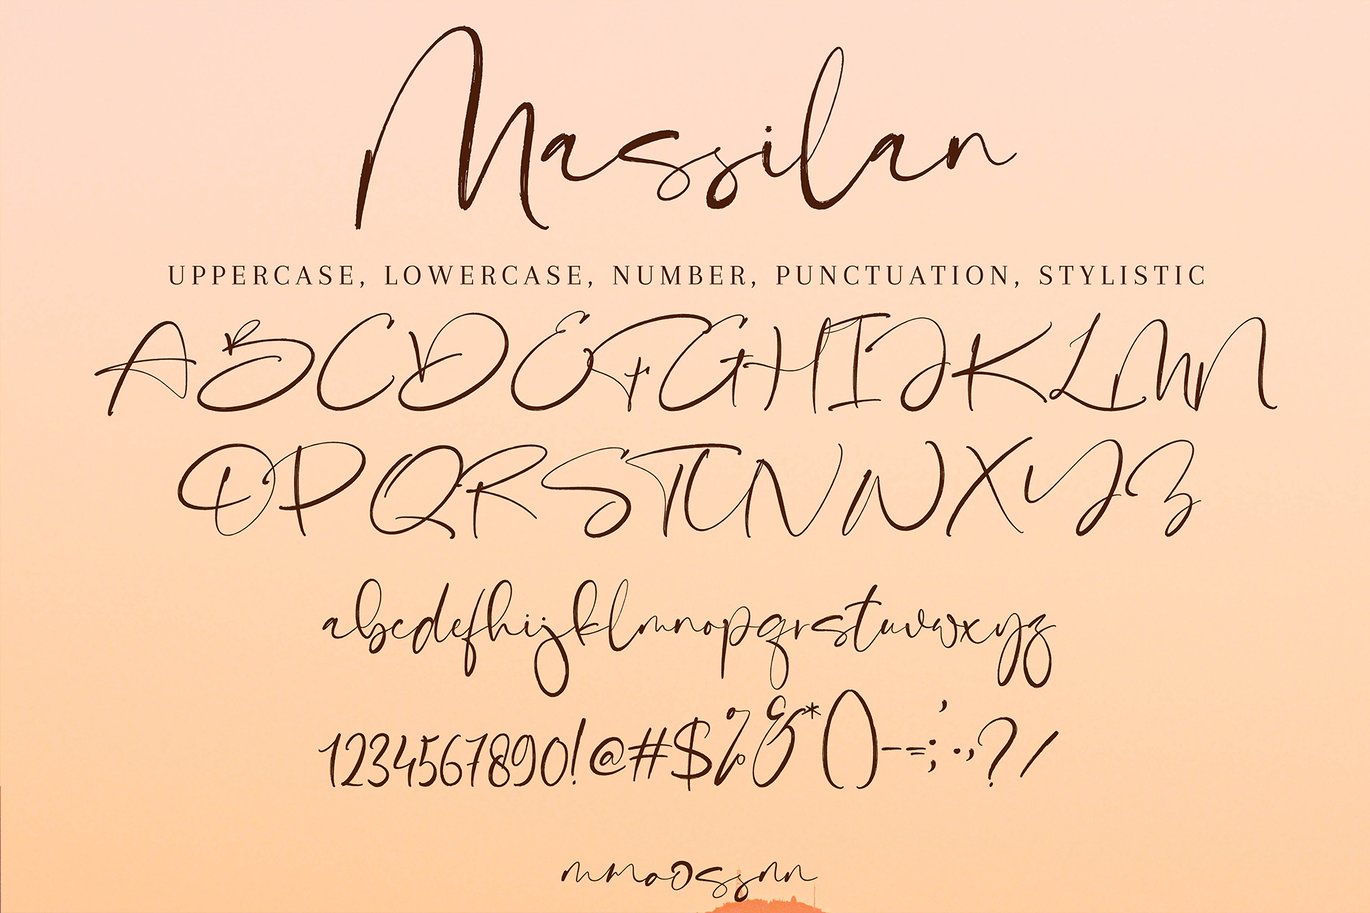 Massilan
UPPERCASE, LOWERCASE, NUMBER, PUNCTUATION, STYLISTIC
ABCDEFGHIJKLMN
OPQRSTUVWXYZ
abcdefhijklmnopqrstuvwxyz
1234567890!@#$%&*()-=;'.,?/
mmoossnn